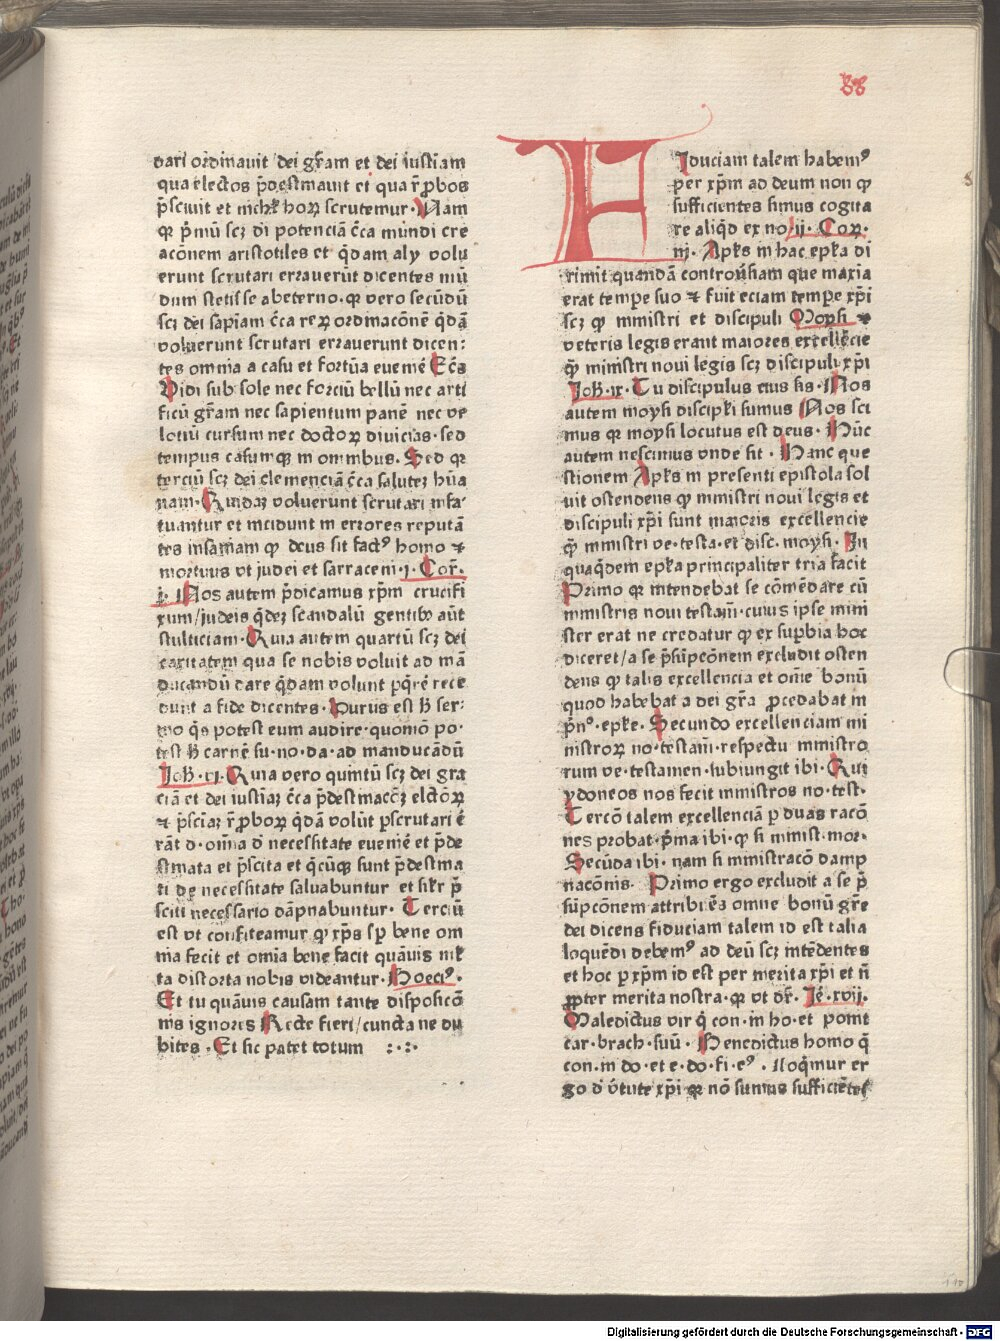 88
dari ordinauit dei gr̄am et dei iusti᷑am
qua electos p̄destinauit et qua rp̄bos
p̄sciuit et nichil hoꝝ scrutemur. Nam
qꝛ pͥmū scꝫ di potenciā c̄ca mundi cre
acōnem aristotiles et qͥdam aly volu
erunt scrutari errauerūt dicentes mū
dum stetisse abeterno. qꝛ vero secūdū
scꝫ dei sapīam c̄ca reꝝ ordinacōnē qͥdā
voluerunt scrutari errauerunt dicen:
tes omnia a casu et fortūa euenīe Ecc̄s
Vidi sub sole nec forciū bellū nec arti
ficū gr̄am nec sapientum panē nec ve
lociū cursum nec doctoꝝ diuicias. sed
tempus casumqꝫ in omnibus. Sed qꝛ
terciū scꝫ dei clemenciā c̄ca saluteꝫ hūa
nam. Quidaꝫ voluerunt scrutari infa
tuantur et incidunt in errores reputā
tes insaniam ꝙ deus sit factꝰ homo ⁊
mortuus vt judei et sarraceni. j. Cor̄.
j. Nos autem p̄dicamus xp̄m crucifi
xum / judeis qͥdeꝫ scandalū gentibꝫ aūt
stulticiam. Quia autem quartū scꝫ dei
caritatem qua se nobis voluit ad mā
ducandū dare qͥdam volunt ꝑqͥrē rece
dunt a fide dicentes. Durus est h̄ ser:
mo qͥs potest eum audire. quomō po-
test h̄ carnē su. no. da. ad manducādū
Joh̄. vj. Quia vero quintū scꝫ dei gra
ciā et dei iusticiaꝫ c̄ca p̄destinacōꝫ elctōꝝ
⁊ p̄sciaꝫ rp̄boꝝ qͥdā volūt ꝑscrutari ē
rāt d. omīa d̄ necessitate euenīe et p̄de
stinata et p̄scita et qͥcūqꝫ sunt p̄destina
ti de necessitate saluabuntur et sil̄r p̄
sciti necessario dāpnabuntur. Terciū
est vt confiteamur ꝙ xp̄s sp̄ bene om
nia fecit et omīa bene facit quāuis ml̄
ta distorta nobis videantur. Boeciꝰ.
Et tu quāuis causam tante disposicō
nis ignores Recte fieri / cuncta ne du
bites. Et sic patet totum :.:.
Fiduciam talem habemꝰ
per xp̄m ad deum non ꝙ
sufficientes simus cogita
re aliqͥd ex no. ij. Cor.
iij. Apl̄s in hac epl̄a di
rimit quandā controūsiam que maxīa
erat tempe suo ⁊ fuit eciam tempe xp̄i
scꝫ ꝙ ministri et discipuli Moysi ⁊
veteris legis erant maiores excellēcie
ꝙ̄ ministri noui legis scꝫ discipuli xp̄i
Joh̄. ix. Tu discipulus eius sis. Nos
autem moysi discipl̄i sumus Nos sci
mus qꝛ moysi locutus est deus. Hūc
autem nescimus vnde sit. Hanc que
stionem Apl̄s in presenti epistola sol
uit ostendens ꝙ ministri noui legis et
discipuli xp̄i sunt maioris excellencie
ꝙ̄ ministri ve. testa. et disc. moysi. In
quaqͥdem epl̄a principaliter tria facit
Primo qꝛ intendebat se cōmēdare cū
ministris noui testam̄. cuius ipse mini
ster erat ne credatur ꝙ ex suꝑbia hoc
diceret / a se p̄sūpcōnem excludit osten
dens ꝙ talis excellencia et om̄e bonū
quod habebat a dei gr̄a ꝓcedabat in
p̄nꝰ. epl̄e. Secundo excellenciam mi
nistroꝝ no. testam̄. respectu ministro
rum ve. testamen. subiungit ibi. Qui
ydoneos nos fecit ministros no. test.
Tercō talem excellenciā ꝑ duas racō
nes probat. p̄ma ibi. ꝙ si minist. mor.
Secūda ibi. nam si ministracō damp
nacōnis. Primo ergo excludit a se p̄
sūpcōnem attribuēs omne bonū gr̄e
dei dicens fiduciam talem id est talia
loquēdi debemꝰ ad deū scꝫ intēdentes
et hoc ꝑ xp̄m id est per merita xp̄i et n̄
ꝓpter merita nostra. qꝛ vt dr̄. Jē. xvij.
Maledictus vir qͥ con. in ho. et ponit
car. brach. suū. Benedictus homo qͥ
con. in do. et e. do. fi. eꝰ. Noqͥmur er
go d̄ v̄tute xp̄i qꝛ nō sumus sufficiētes
Digitalisierung gefördert durch die Deutsche Forschungsgemeinschaft - DFG